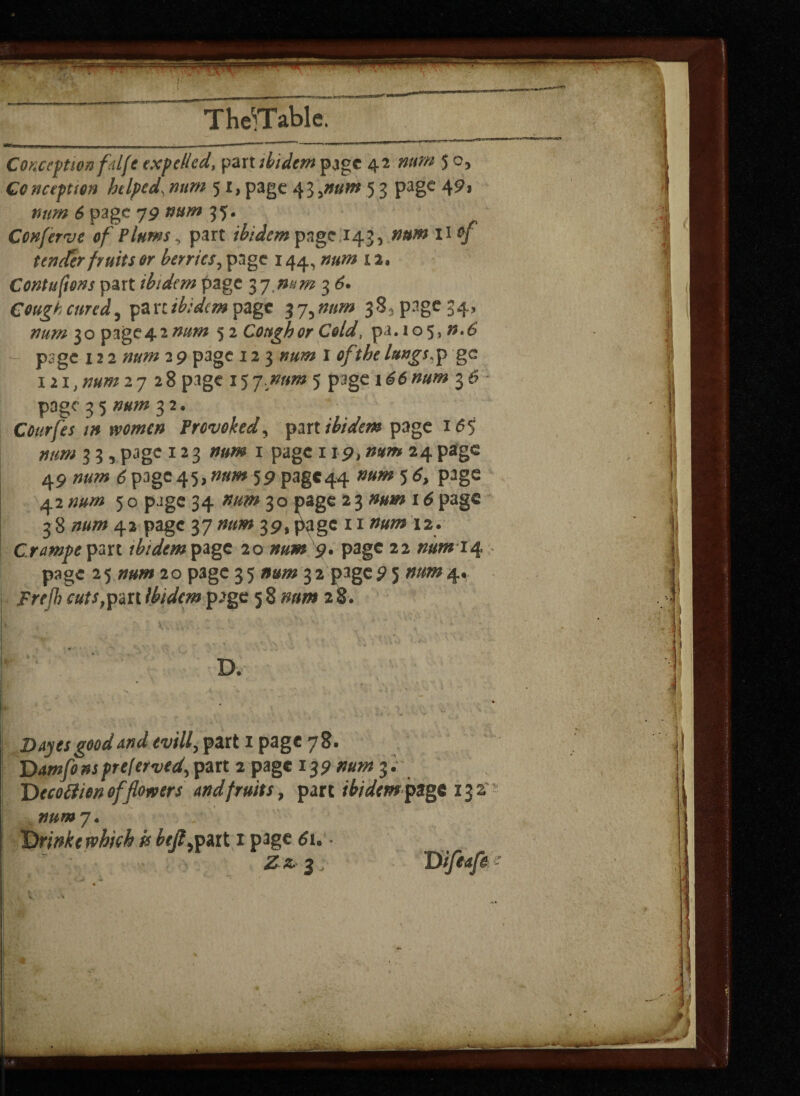 The Table.
Conception false expelled, part ibidem page 42 num 50,
Conception helped, num 51, page 43, num 53 page 49,
num 6 page 79 num 35.
Conserve of Plums, part ibidem page 143, num 11 of
tender fruits or berries, page 144, num 12.
Contusions part ibidem page 37. num 36.
Cough cured, part ibidem page 37, num 38, page 34,
num 30 page 42 num 52 Cough or Cold, pa. 105, n.6
page 122 num 29 page 123 num 1 of the lungs, p ge
121, num 27 28 page 157. num 5 page 166 num 36
page 35 num 32.
Courses in women Provoked, part ibidem page 165
num 33, page 123 num 1 page 119, num 24 page
49 num 6 page 45, num 59 page 44 num 56, page
42 num 50 page 34 num 30 page 23 num 16 page
38 num 42 page 37 num 39, page 11 num 12.
Crampe part ibidem page 20 num 9. page 22 num 14
page 25 num 20 page 35 num 32 page 95 num 4.
Fresh cuts, part Ibidem page 58 num 28.
D.
Dayes good and evill, part 1 page 78.
Damsons preserved, part 2 page 139 num 3.
Decoction of flowers and fruits, part ibidem page 132
num 7.
Drinke which is best, part 1 page 61.
Zz 3 Disease